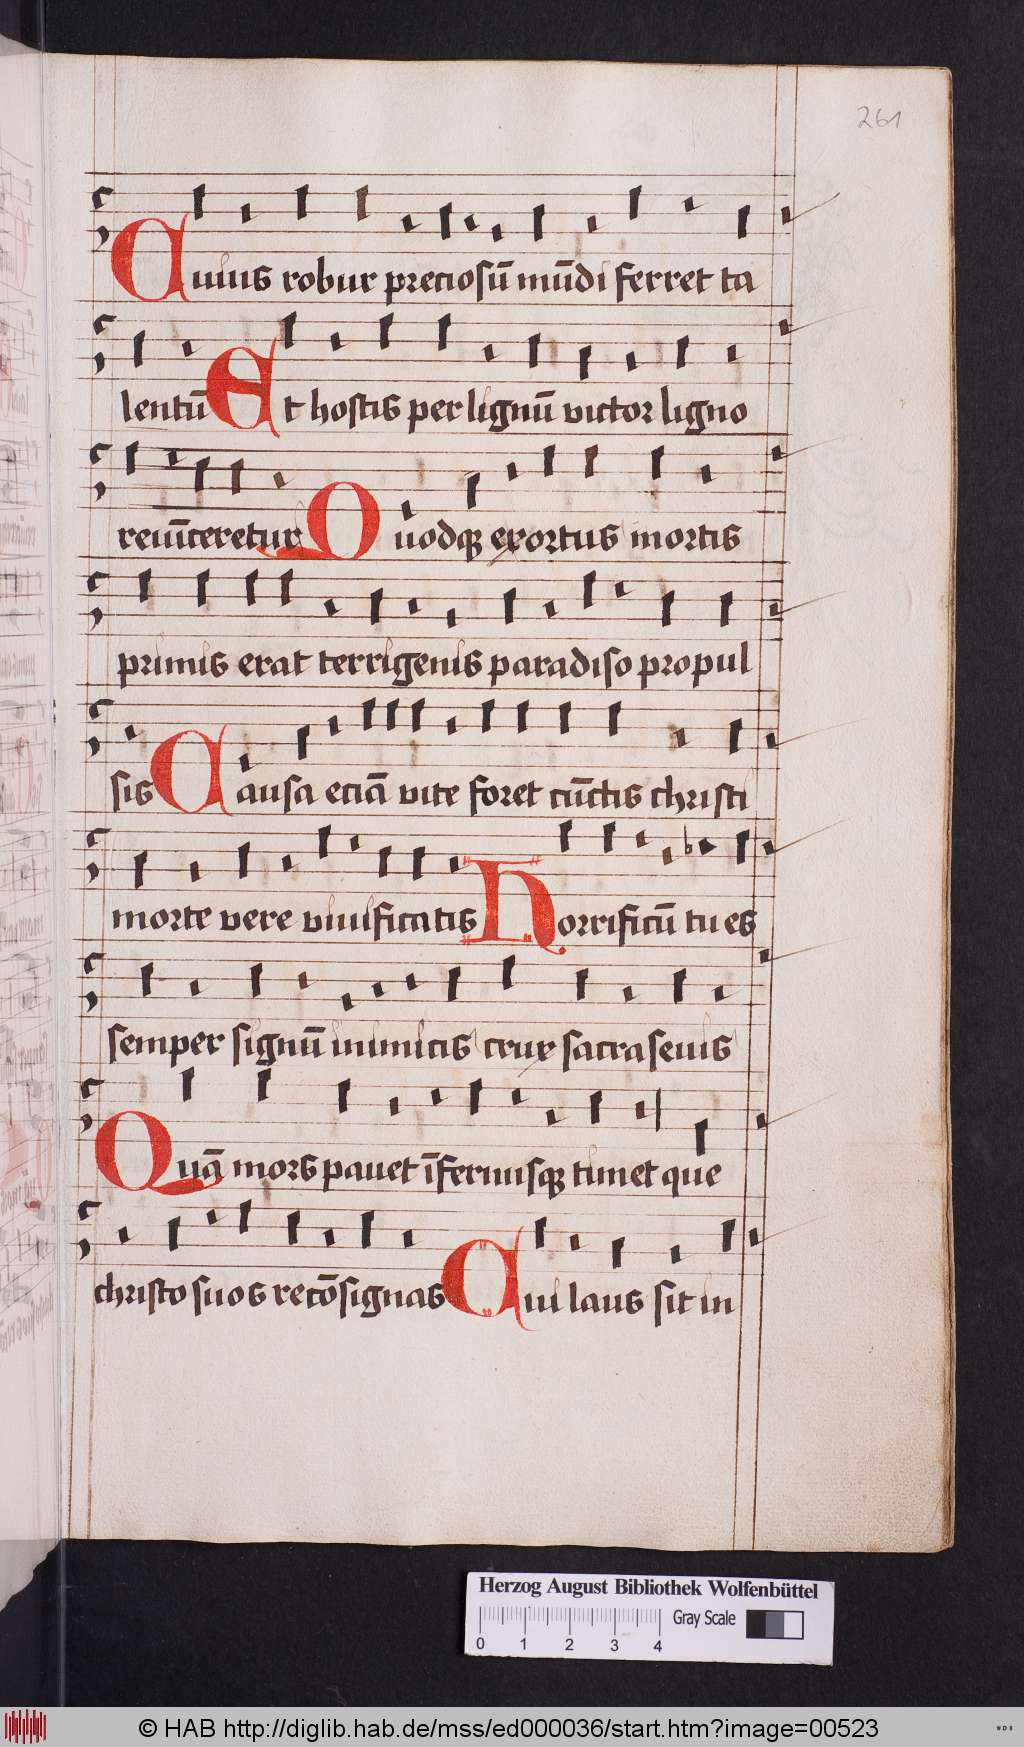 261
Cuius robur preciosū mūdi ferret ta
lentū Et hostis per lignū victor ligno
reuīceretur Quodqꝫ exortus mortis
primis erat terrigenis paradiso propul
sis Causa eciā vite foret cūctis christi
morte vere viuificatis Horrificū tu es
semper signū inimicis crux sacra seuis
Quā mors pauet īfernusqꝫ timet que
christo suos recōsignas Cui laus sit in
Herzog August Bibliothek Wolfenbüttel
Gray Scale
0 1 2 3 4
© HAB http://diglib.hab.de/mss/ed000036/start.htm?image=00523